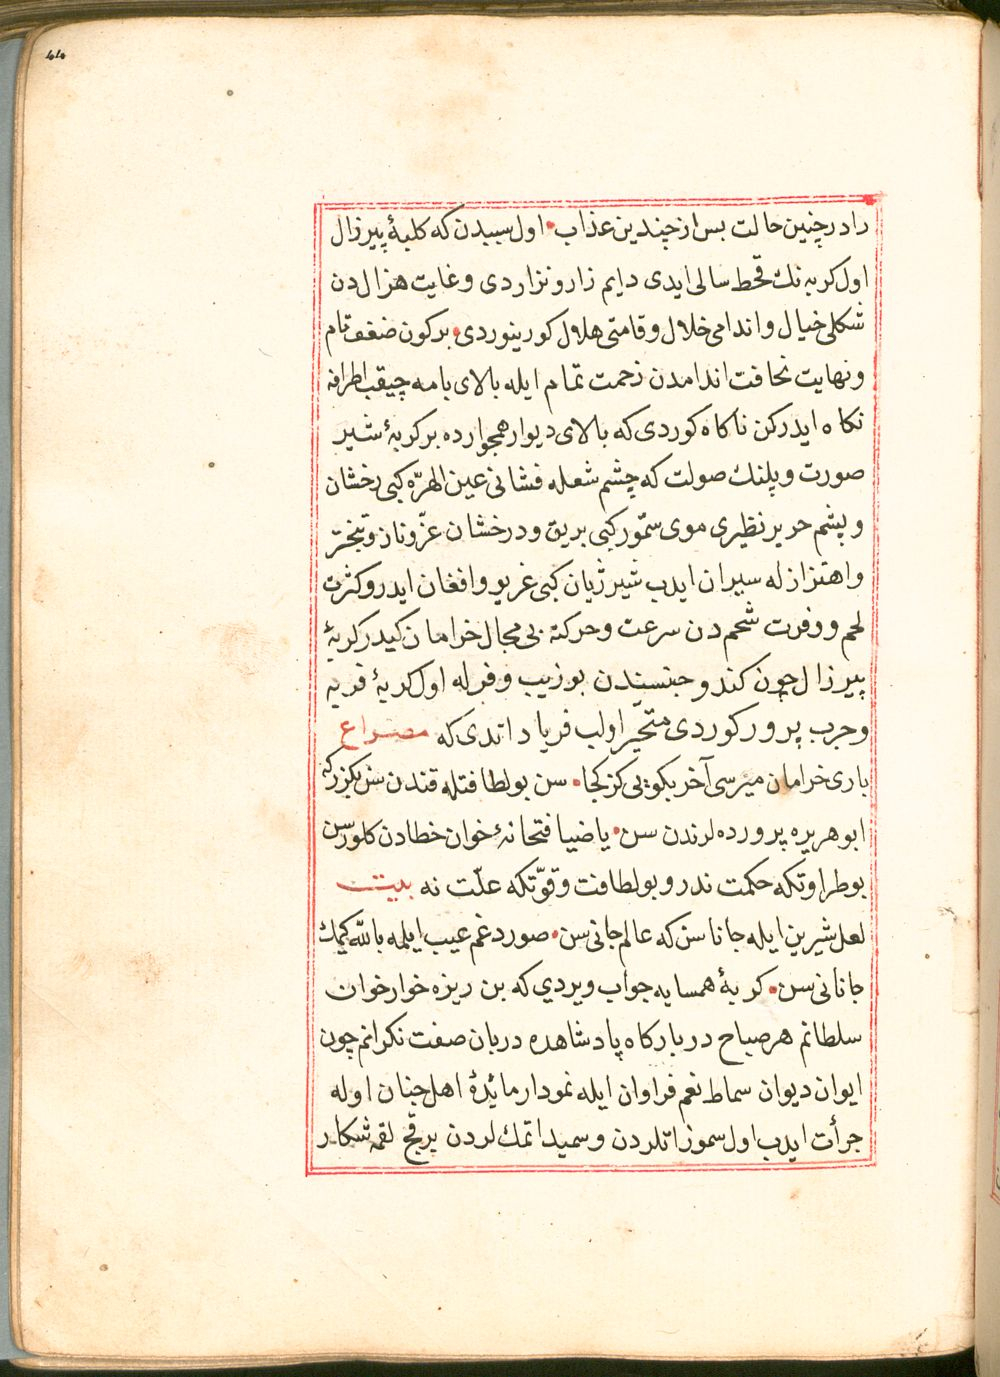 44
را در چنین حالت بس از چندین عذاب • اول سببدن که کلبۀ پیرزال
اول کربه نك قحط سالی ایدی دایم زار و نزار دی و غایت هزال دن
شکلی خیال و اندامی خلال و قامتی هلال کورینوردی • بر کون ضعف تام
و نهایت نحافت اندامدن زحمت تمام ایله بالای بامه چیقب اطرافه
نکاه ایدرکن ناکاه کوردی که بالای دیوار همجوارده بر کربۀ شیر
صورت و پلنك صولت که چشم شعله فشانی عین الهرّه کبی رخشان
و پشم حریر نظیری موی سمّور کبی بریق و درخشان عزّ و ناز و تبختر
و اهتزازله سیران ایدب شیر ژیان کبی غریو و افغان ایدر و کثرت
لحم و وفرت شحم دن سرعت و حرکته بی مجال خرامان کیدر کربۀ
پیرزال چون کندو جنسیندن بو زیب و فرله اول کربۀ فربه
و چرب پرور کوردی متحیّر اولب فریاد اتدی که مصراع
باری خرامان میرسی آخر بکویی کز کجا • سن بو لطافتله قندن سن بکزرکه
ابو هریره پرورده لرندن سن • یا ضیافتخانۀ خوان خطادن کلورسن
بو طراوتکه حکمت ندر و بو لطافت و قوّتکه علّت نه بیت
لعل شیرین ایله جانا سن که عالم جانی سن • صوردغم عیب ایلمه بالله کیمك
جانانی سن • کربۀ همسایه جواب ویردی که بن ریزه خوار خوان
سلطانم هر صباح دربارکاه پادشاهده دربان صفت نکرانم چون
ایوان دیوان سماط نعم فراوان ایله نمودار مائدۀ اهل جنان اوله
جرأت ایدب اول سموز اتلردن و سمید اتمك لردن برقچ لقمه شکار